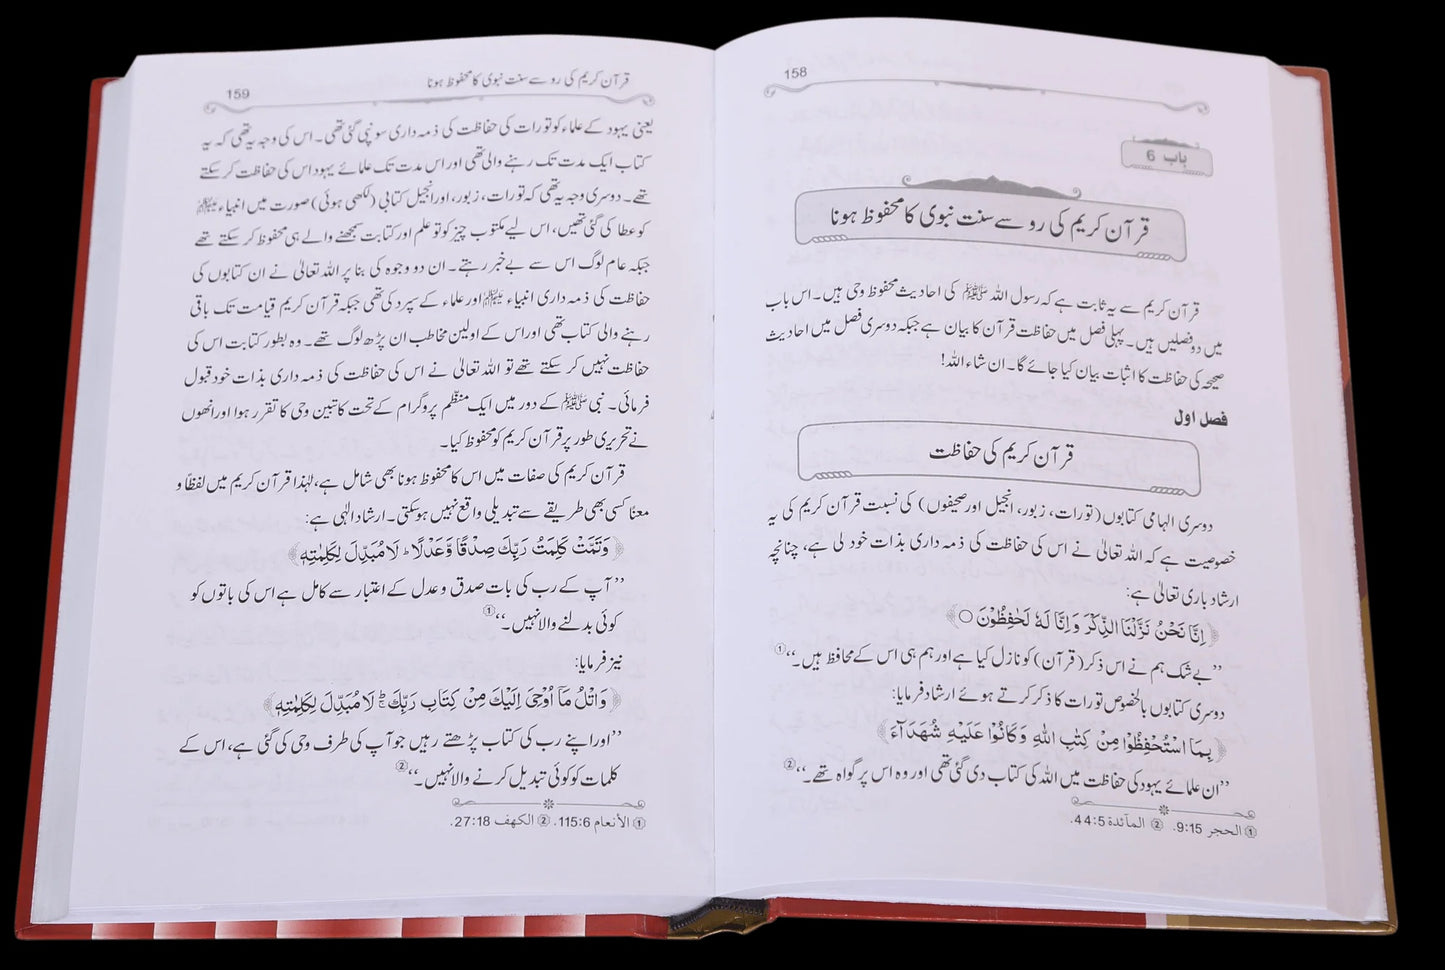 158
باب 6
قرآن کریم کی رو سے سنت نبوی کا محفوظ ہونا
قرآن کریم سے یہ ثابت ہے کہ رسول اللہ ﷺ کی احادیث محفوظ وحی ہیں۔ اس باب
میں دو فصلیں ہیں۔ پہلی فصل میں حفاظت قرآن کا بیان ہے جبکہ دوسری فصل میں احادیث
صحیحہ کی حفاظت کا اثبات بیان کیا جائے گا۔ ان شاء اللہ!
فصل اول
قرآن کریم کی حفاظت
دوسری الہامی کتابوں (تورات، زبور، انجیل اور صحیفوں) کی نسبت قرآن کریم کی یہ
خصوصیت ہے کہ اللہ تعالیٰ نے اس کی حفاظت کی ذمہ داری بذات خود لی ہے، چنانچہ
ارشاد باری تعالیٰ ہے:
﴿ اِنَّا نَحْنُ نَزَّلْنَا الذِّكْرَ وَاِنَّا لَهٗ لَحٰفِظُوْنَ ○ ﴾
’’بے شک ہم نے اس ذکر (قرآن) کو نازل کیا ہے اور ہم ہی اس کے محافظ ہیں۔‘‘①
دوسری کتابوں بالخصوص تورات کا ذکر کرتے ہوئے ارشاد فرمایا:
﴿ بِمَا اسْتُحْفِظُوْا مِنْ كِتٰبِ اللّٰهِ وَكَانُوْا عَلَيْهِ شُهَدَآءَ ﴾
’’ان علمائے یہود کی حفاظت میں اللہ کی کتاب دی گئی تھی اور وہ اس پر گواہ تھے۔‘‘②
① الحجر 9:15. ② المآئدة 44:5.
159
قرآن کریم کی رو سے سنت نبوی کا محفوظ ہونا
یعنی یہود کے علماء کو تورات کی حفاظت کی ذمہ داری سونپی گئی تھی۔ اس کی وجہ یہ تھی کہ یہ
کتاب ایک مدت تک رہنے والی تھی اور اس مدت تک علمائے یہود اس کی حفاظت کر سکتے
تھے۔ دوسری وجہ یہ تھی کہ تورات، زبور، اور انجیل کتابی (لکھی ہوئی) صورت میں انبیاء ﷩
کو عطا کی گئی تھیں، اس لیے مکتوب چیز کو تو علم اور کتابت سمجھنے والے ہی محفوظ کر سکتے تھے
جبکہ عام لوگ اس سے بے خبر رہتے۔ ان دو وجوہ کی بنا پر اللہ تعالیٰ نے ان کتابوں کی
حفاظت کی ذمہ داری انبیاء ﷩ اور علماء کے سپرد کی تھی جبکہ قرآن کریم قیامت تک باقی
رہنے والی کتاب تھی اور اس کے اولین مخاطب ان پڑھ لوگ تھے۔ وہ بطور کتابت اس کی
حفاظت نہیں کر سکتے تھے تو اللہ تعالیٰ نے اس کی حفاظت کی ذمہ داری بذات خود قبول
فرمائی۔ نبی ﷺ کے دور میں ایک منظّم پروگرام کے تحت کاتبین وحی کا تقرر ہوا اور انھوں
نے تحریری طور پر قرآن کریم کو محفوظ کیا۔
قرآن کریم کی صفات میں اس کا محفوظ ہونا بھی شامل ہے، لہٰذا قرآن کریم میں لفظًا و
معنًا کسی بھی طریقے سے تبدیلی واقع نہیں ہو سکتی۔ ارشاد الٰہی ہے:
﴿ وَتَمَّتْ كَلِمَتُ رَبِّكَ صِدْقًا وَّعَدْلًا ؕ لَا مُبَدِّلَ لِكَلِمٰتِهٖ ﴾
’’آپ کے رب کی بات صدق و عدل کے اعتبار سے کامل ہے اس کی باتوں کو
کوئی بدلنے والا نہیں۔‘‘①
نیز فرمایا:
﴿ وَاتْلُ مَاۤ اُوْحِيَ اِلَيْكَ مِنْ كِتَابِ رَبِّكَ ۚ لَا مُبَدِّلَ لِكَلِمٰتِهٖ ﴾
’’اور اپنے رب کی کتاب پڑھتے رہیں جو آپ کی طرف وحی کی گئی ہے، اس کے
کلمات کو کوئی تبدیل کرنے والا نہیں۔‘‘②
① الأنعام 115:6. ② الكهف 27:18.